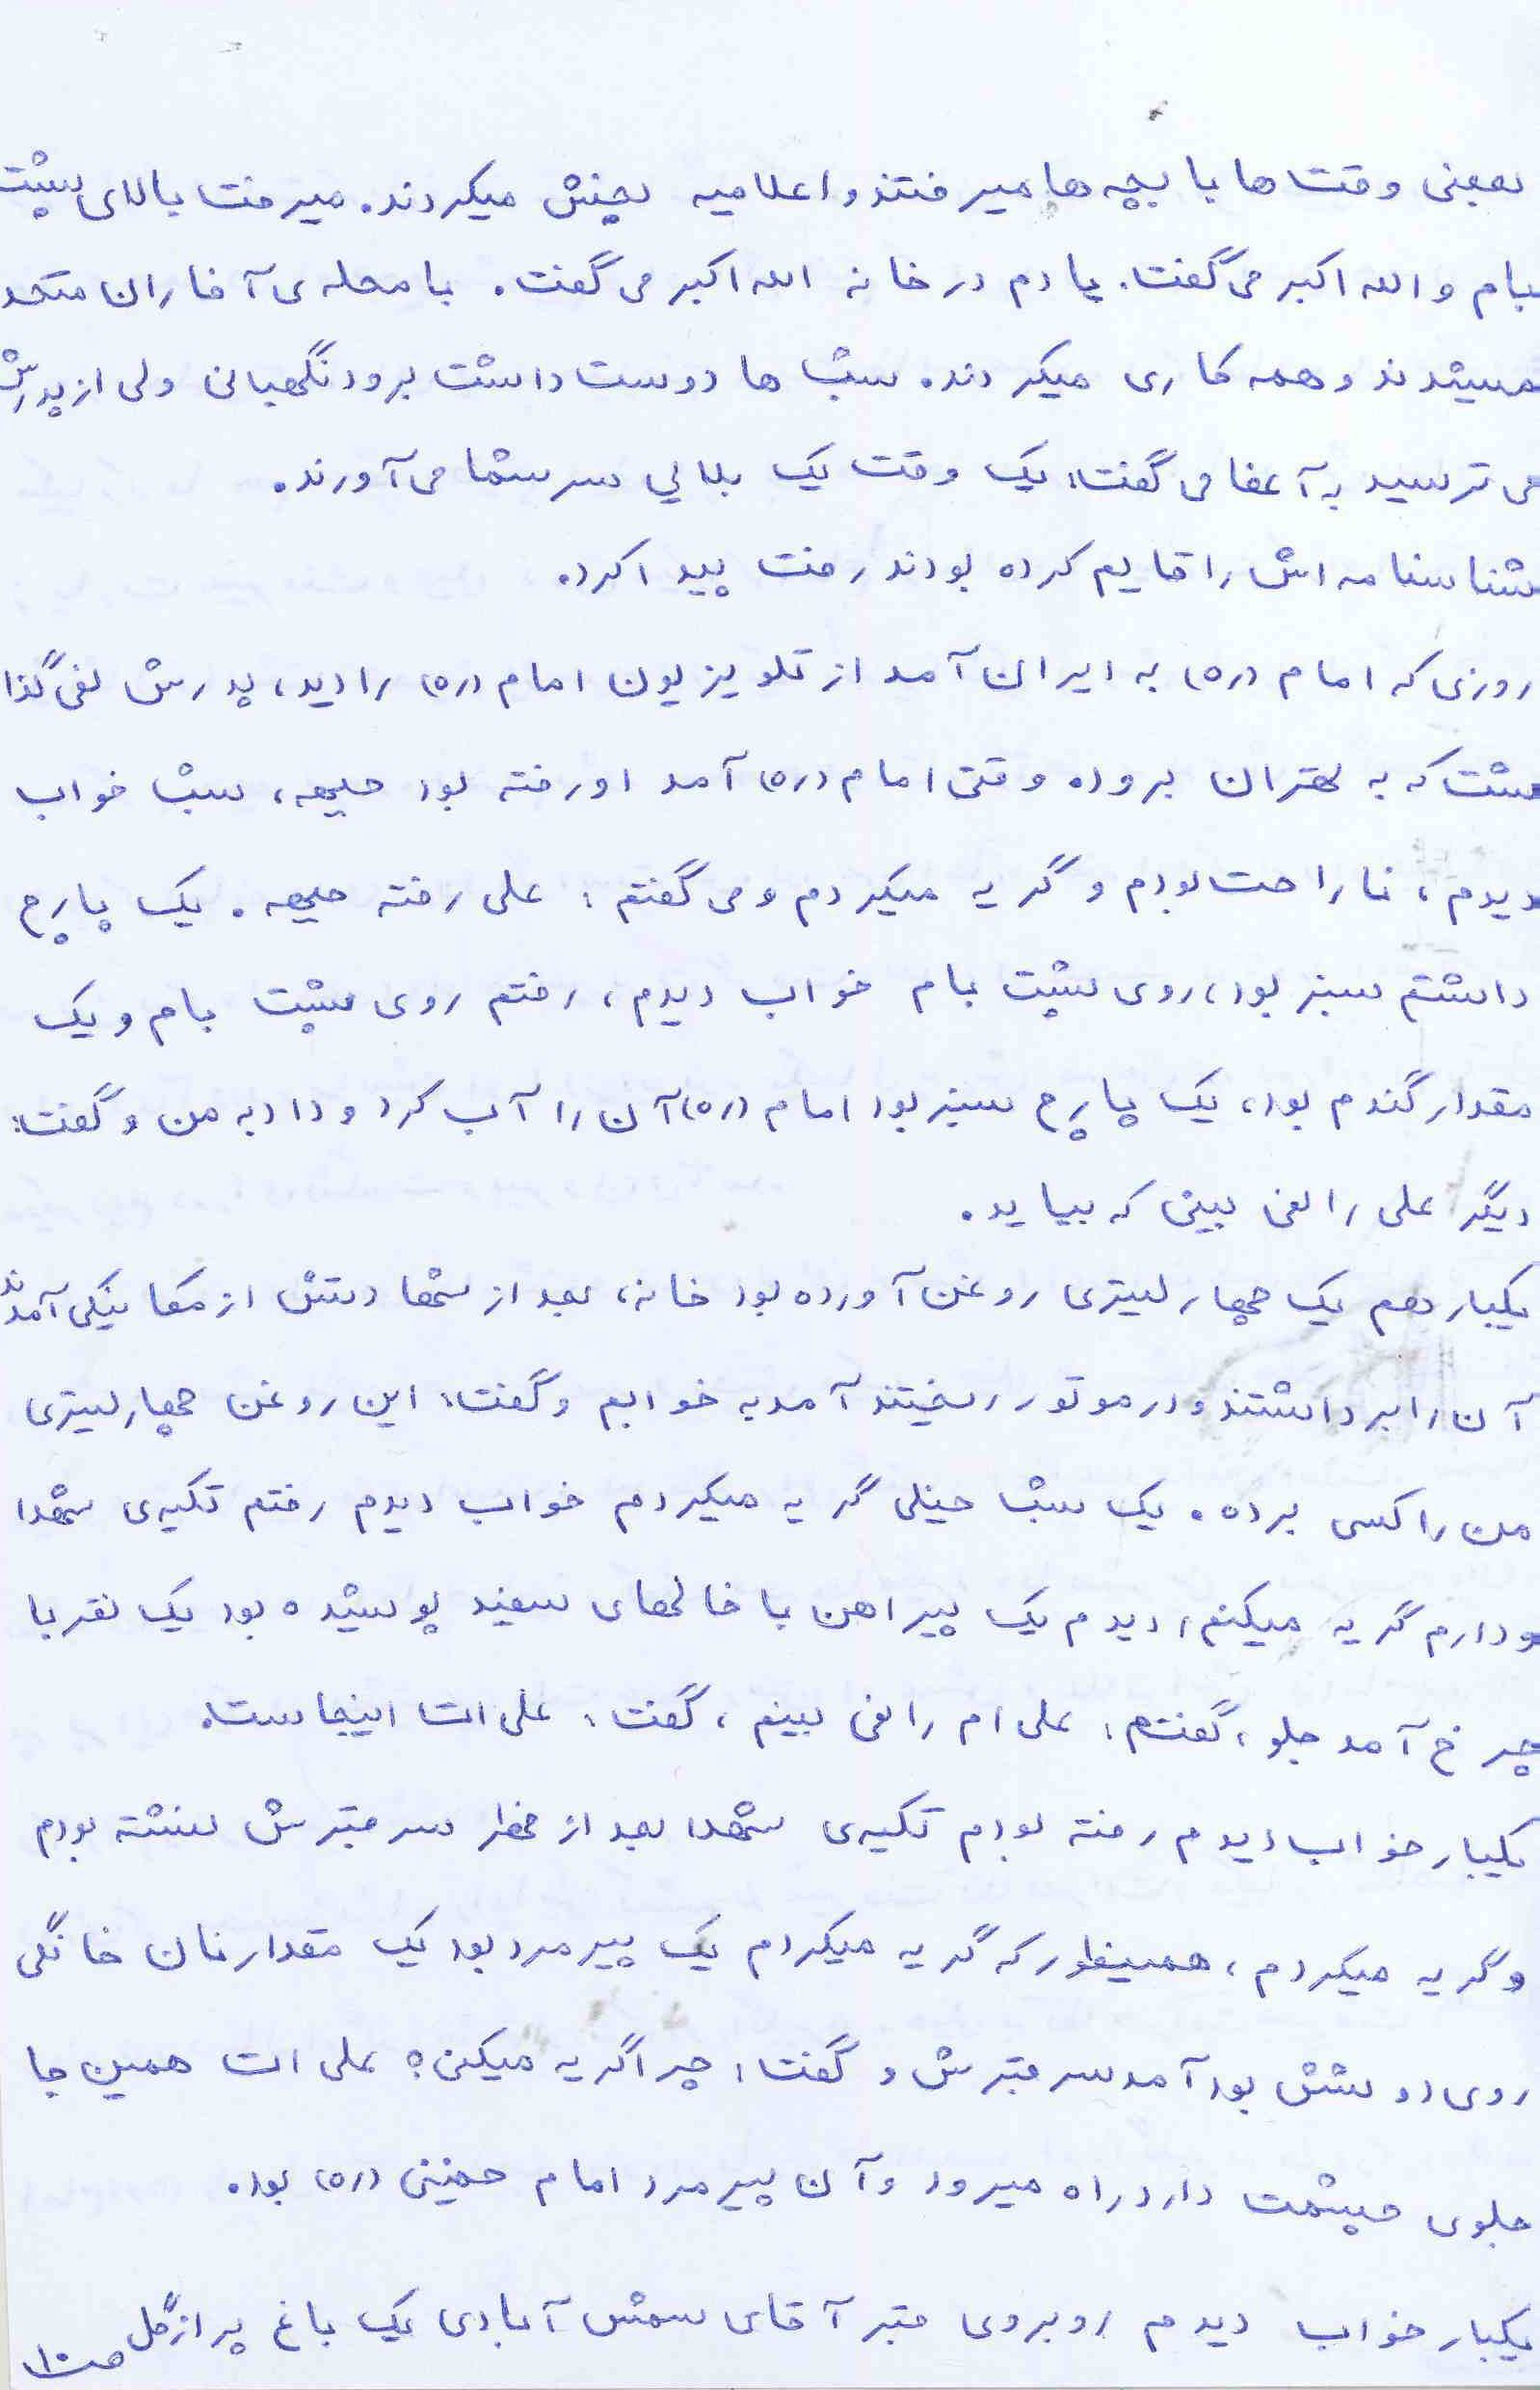 بعضی وقت ها با بچه ها میرفتند و اعلامیه پخش میکردند. میرفت بالای پشت
بام و الله اکبر می گفت. یا دم در خانه الله اکبر می گفت. با محله ی آفاران متحد
میشدند و همه کاری میکردند. شب ها دوست داشت برود نگهبانی ولی از پدرش
می ترسید به آنها می گفت: یک وقت یک بلایی سر شما می آورند.
شناسنامه اش را قایم کرده بودند رفت پیدا کرد.
روزی که امام (ره) به ایران آمد از تلویزیون امام (ره) را دید، پدرش نمی گذا
شت که به تهران برود. وقتی امام (ره) آمد او رفته بود جبهه، شب خواب
دیدم، ناراحت بودم و گریه میکردم و می گفتم: علی رفته جبهه. یک پارچ
داشتم سبز بود، روی پشت بام خواب دیدم، رفتم روی پشت بام و یک
مقدار گندم بود، یک پارچ سبز بود امام (ره) آن را آب کرد و داد به من و گفت:
دیگر علی را نمی بینی که بیاید.
یکبار هم یک چهار لیتری روغن آورده بود خانه، بعد از شهادتش از مکانیکی آمدند
آن را برداشتند و در موتور ریختند آمد به خوابم و گفت: این روغن چهار لیتری
من را کسی برده. یک شب خیلی گریه میکردم خواب دیدم رفتم تکیه ی شهدا
و دارم گریه میکنم، دیدم یک پیراهن با خالهای سفید پوشیده بود یک نفر با
چرخ آمد جلو، گفتم: علی ام را نمی بینم، گفت: علی ات اینجاست.
یکبار خواب دیدم رفته بودم تکیه ی شهدا بعد از ظهر سر قبرش نشسته بودم
و گریه میکردم، همینطور که گریه میکردم یک پیرمرد بود یک مقدار نان خانگی
روی دوشش بود آمد سر قبرش و گفت: چرا گریه میکنی؟ علی ات همین جا
جلوی چشمت دارد راه میرود و آن پیرمرد امام خمینی (ره) بود.
یکبار خواب دیدم روبروی قبر آقای شمس آبادی یک باغ پر از گل
ص۱۰